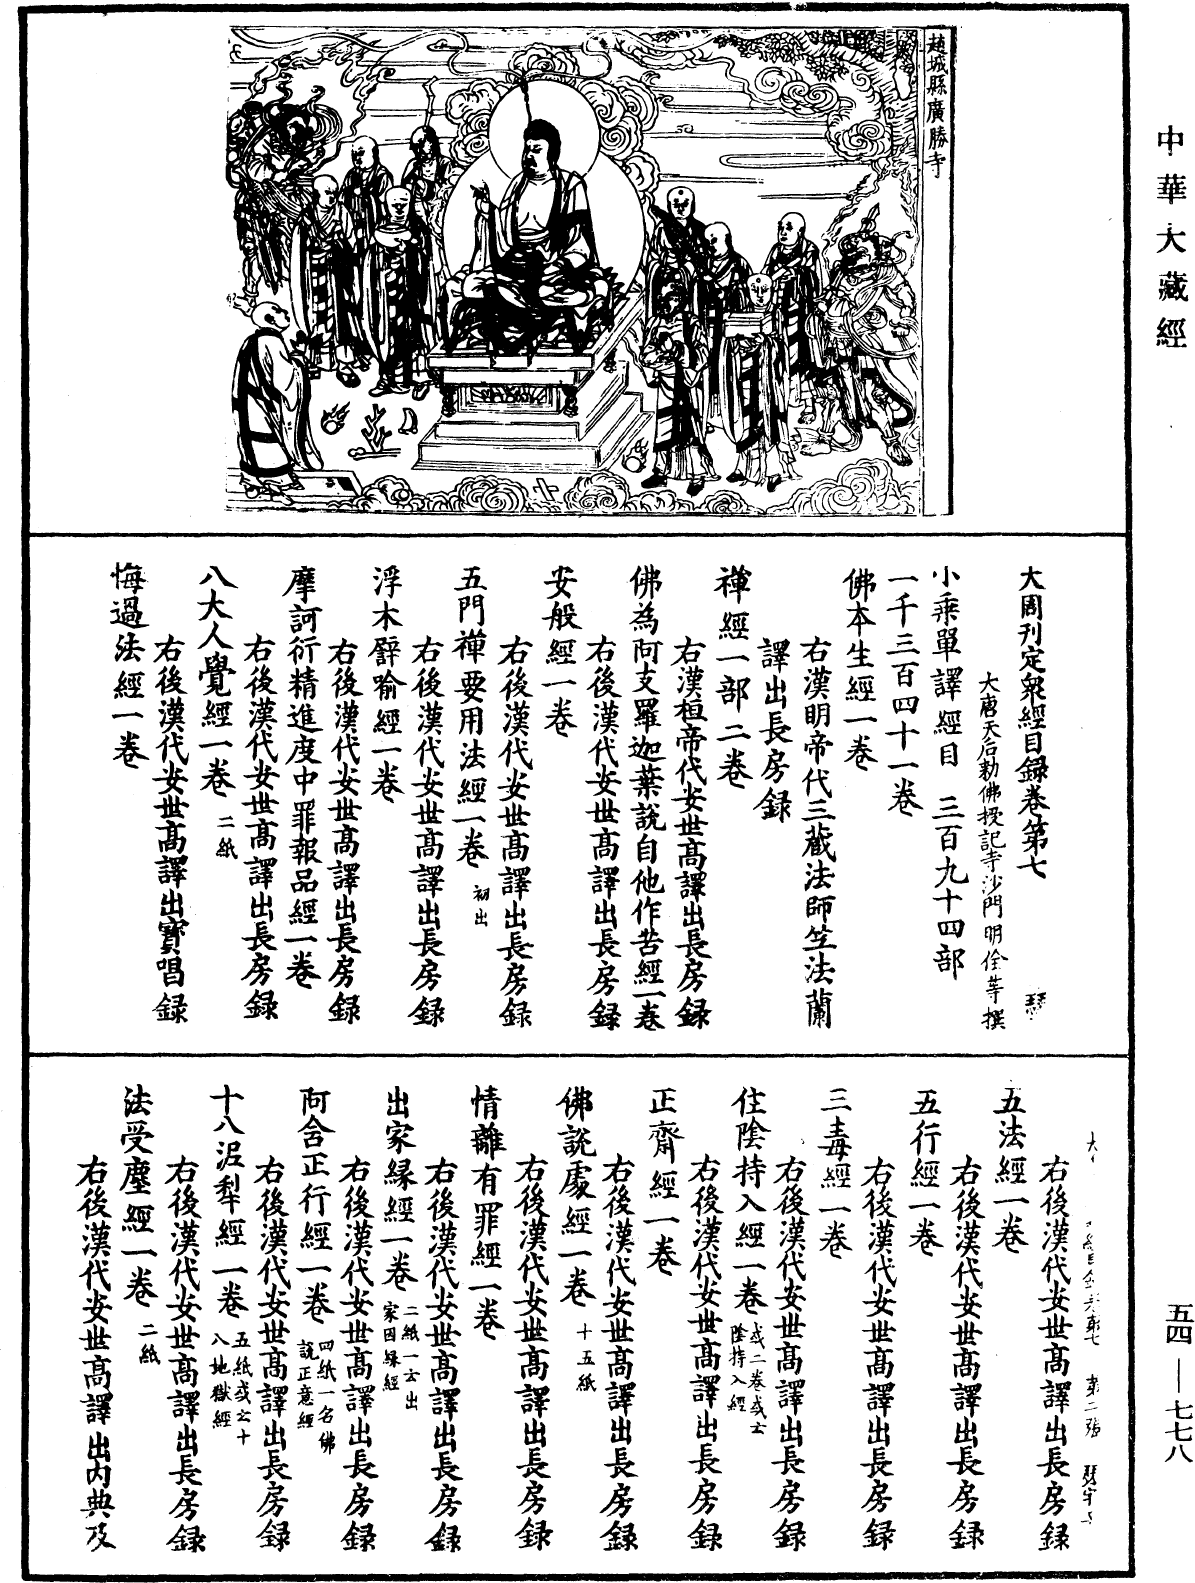 中華大藏經
趙城縣廣勝寺
大周刊定衆經目録卷第七
大唐天后勑佛授記寺沙門明佺等撰
小乘單譯經目 三百九十四部
一千三百四十一卷
佛本生經一卷
右漢明帝代三藏法師竺法蘭
譯出長房録
禪經一部二卷
右漢桓帝代安世高譯出長房録
佛為阿支羅迦葉說自他作苦經一卷
右後漢代安世高譯出長房録
安般經一卷
右後漢代安世高譯出長房録
五門禪要用法經一卷 初出
右後漢代安世高譯出長房録
浮木譬喻經一卷
右後漢代安世高譯出長房録
摩訶衍精進度中罪報品經一卷
右後漢代安世高譯出長房録
八大人覺經一卷 二紙
右後漢代安世高譯出寶唱録
悔過法經一卷
右後漢代安世高譯出長房録
五法經一卷
右後漢代安世高譯出長房録
五行經一卷
右後漢代安世高譯出長房録
三毒經一卷
右後漢代安世高譯出長房録
住陰持入經一卷 或二卷或云
陰持入經
右後漢代安世高譯出長房録
正齋經一卷
右後漢代安世高譯出長房録
佛說處經一卷 十五紙
右後漢代安世高譯出長房録
情離有罪經一卷
右後漢代安世高譯出長房録
出家緣經一卷 二紙一云出
家因緣經
右後漢代安世高譯出長房録
阿含正行經一卷 四紙一名佛
說正意經
右後漢代安世高譯出長房録
十八泥犁經一卷 五紙或云十
八地獄經
右後漢代安世高譯出長房録
法受塵經一卷 二紙
右後漢代安世高譯出內典及
五四—七七八